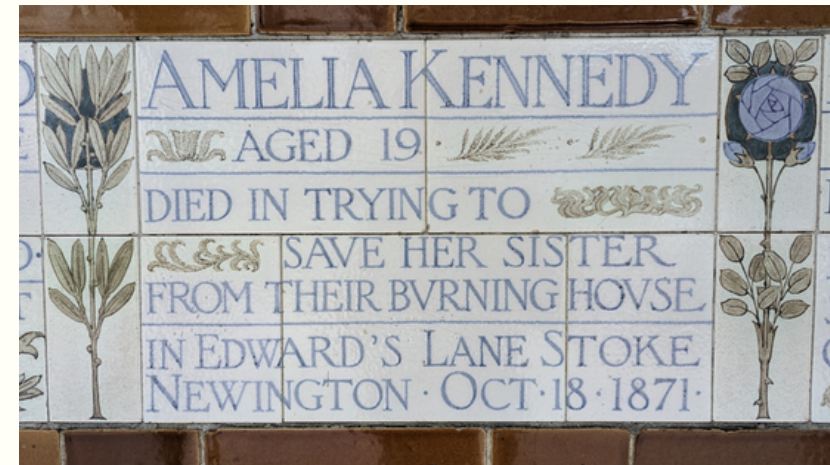 AMELIA KENNEDY
AGED 19
DIED IN TRYING TO
SAVE HER SISTER
FROM THEIR BVRNING HOVSE
IN EDWARD'S LANE STOKE
NEWINGTON · OCT · 18 · 1871 ·